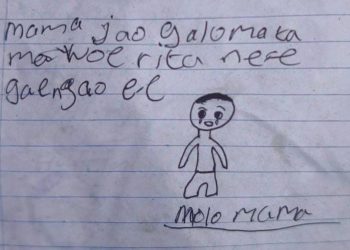 mama jao galomaka
ma woe rita nere
gaengao e-e
molo mama